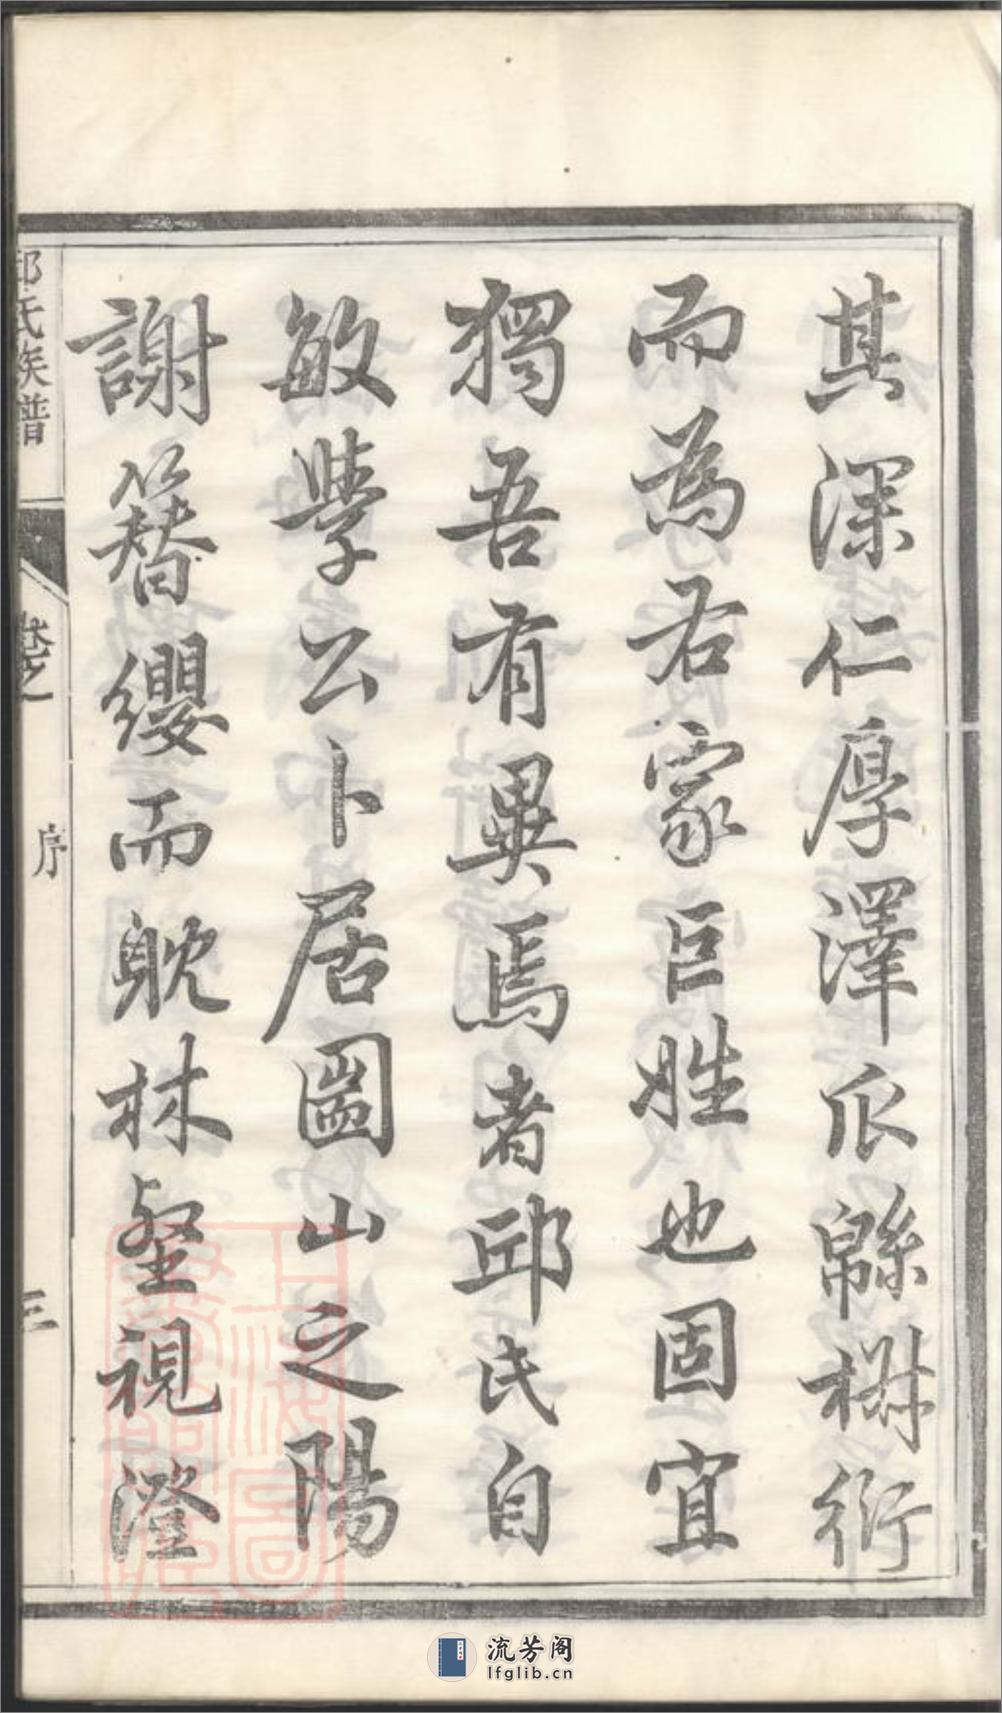 其深仁厚澤瓜緜椒衍
而為右家巨姓也固宜
獨吾有異焉者邱氏自
敏學公卜居圖山之陽
謝簪纓而躭林壑視澄
邱氏族譜
卷之
序
三
上海圖書館藏
流芳阁
lfglib.cn